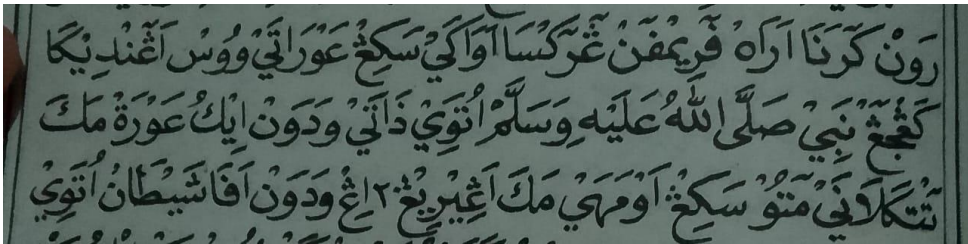 رَوْنْ كَرَنَا اَرَاهْ فَرِيمْفَنْ ڠَرَكْسَا اَوَاكَيْ سَكِڠْ عَوْرَاتَيْ وَوُسْ اَڠَنْدِيْكَا
كَڠْجَڠْ نَبِيْ صَلَّى اللهُ عَلَيْهِ وَسَلَّمْ اُتَوِيْ ذَاتَيْ وَدَوْنْ اِيْكُ عَوْرَةْ مَكَ
تَتْكَلَانَيْ مَتُوْ سَكِڠْ اَوْمَهَيْ مَكَ اَڠِيْرِيْڠْ٢ اِڠْ وَدَوْنْ اَفَا شَيْطَانْ اُتَوِيْ